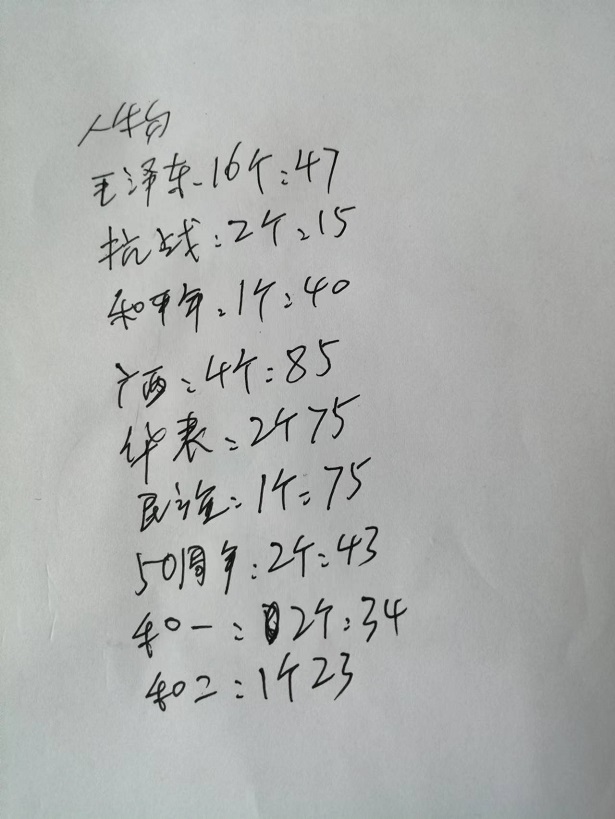 人物
毛泽东.16个:47
抗战:2个:15
和平年:1个:40
广西:4个:85
华表:2个75
民族:1个:75
50周年:2个:43
和一:2个:34
和二:1个23